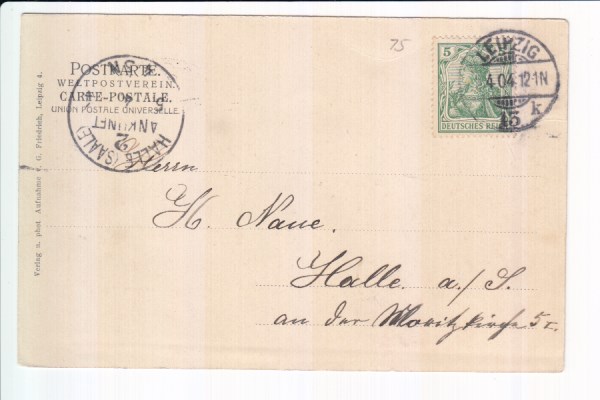 75
POSTKARTE.
WELTPOSTVEREIN.
CARTE-POSTALE.
UNION POSTALE UNIVERSELLE.
HALLE (SAALE)
ANKUNFT
2
5
DEUTSCHES REICH
LEIPZIG
4.04.12-1N
15 k
Herrn
H. Naue.
Halle a./S.
an der Moritzkirche 5 I.
Verlag u. phot. Aufnahme v. G. Friedrich, Leipzig 4.